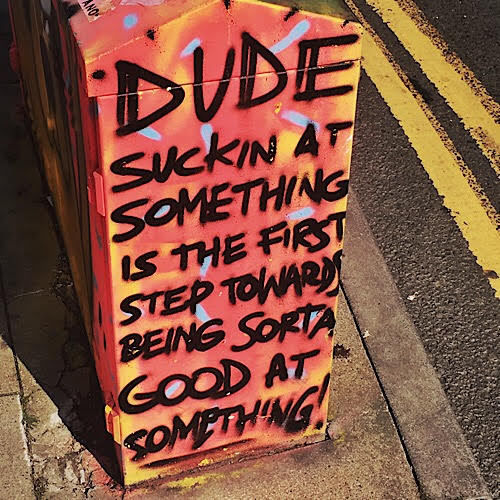 DUDE
SUCKIN AT
SOMETHING
IS THE FIRST
STEP TOWARDS
BEING SORTA
GOOD AT
SOMETHING!